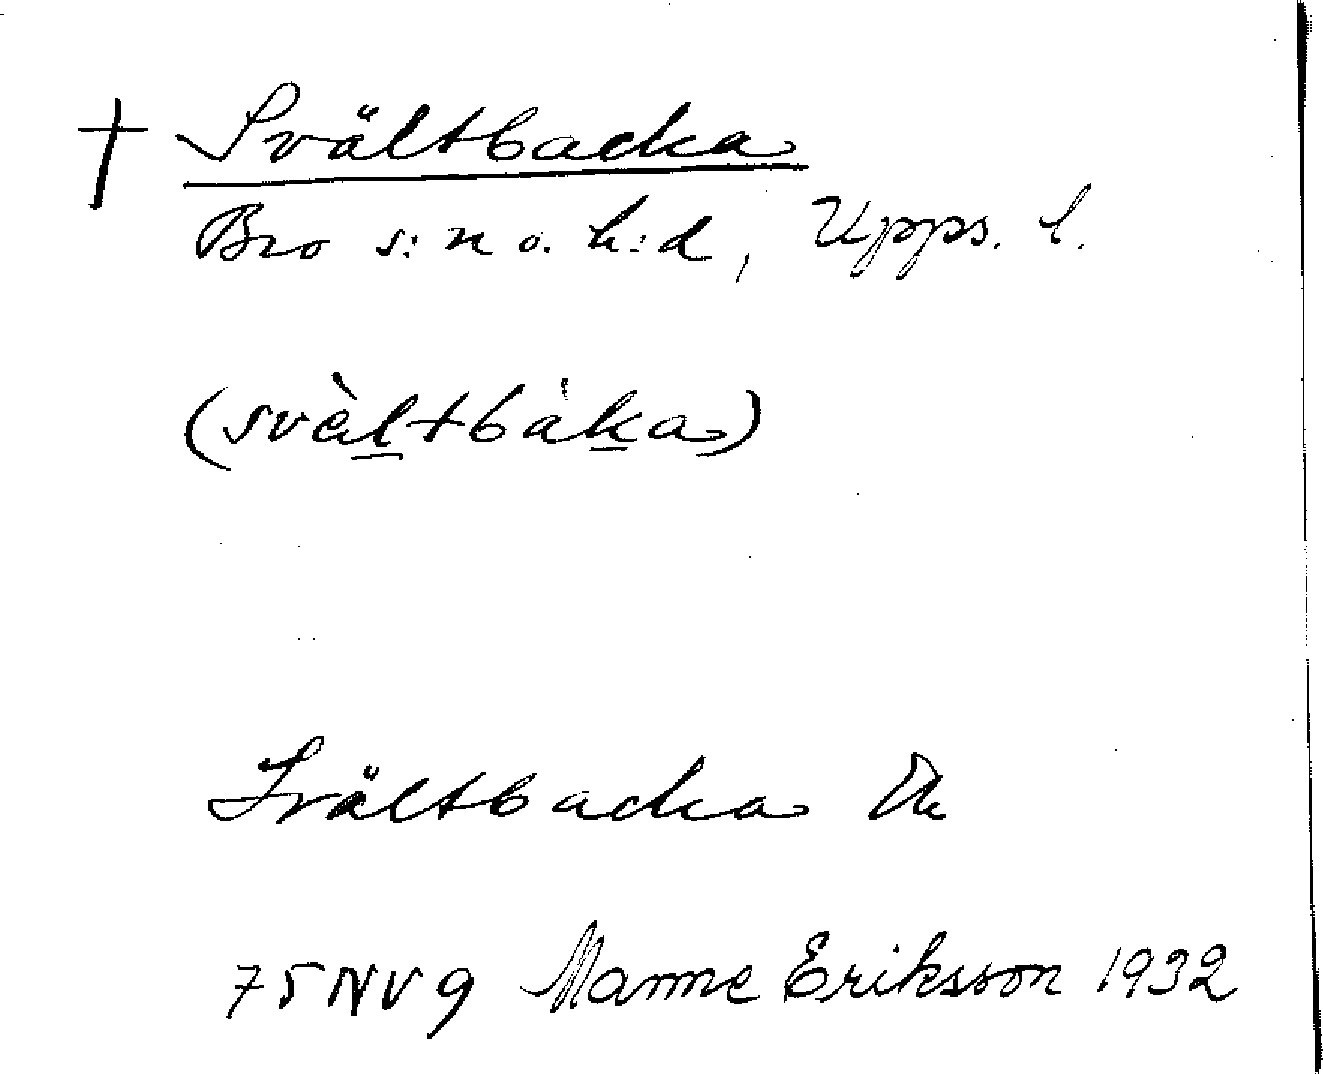 † Svältbacka
Bro s:n o. h:d, Upps. l.
(svàltbàka)
Svältbacka Ek
75NV9 Manne Eriksson 1932